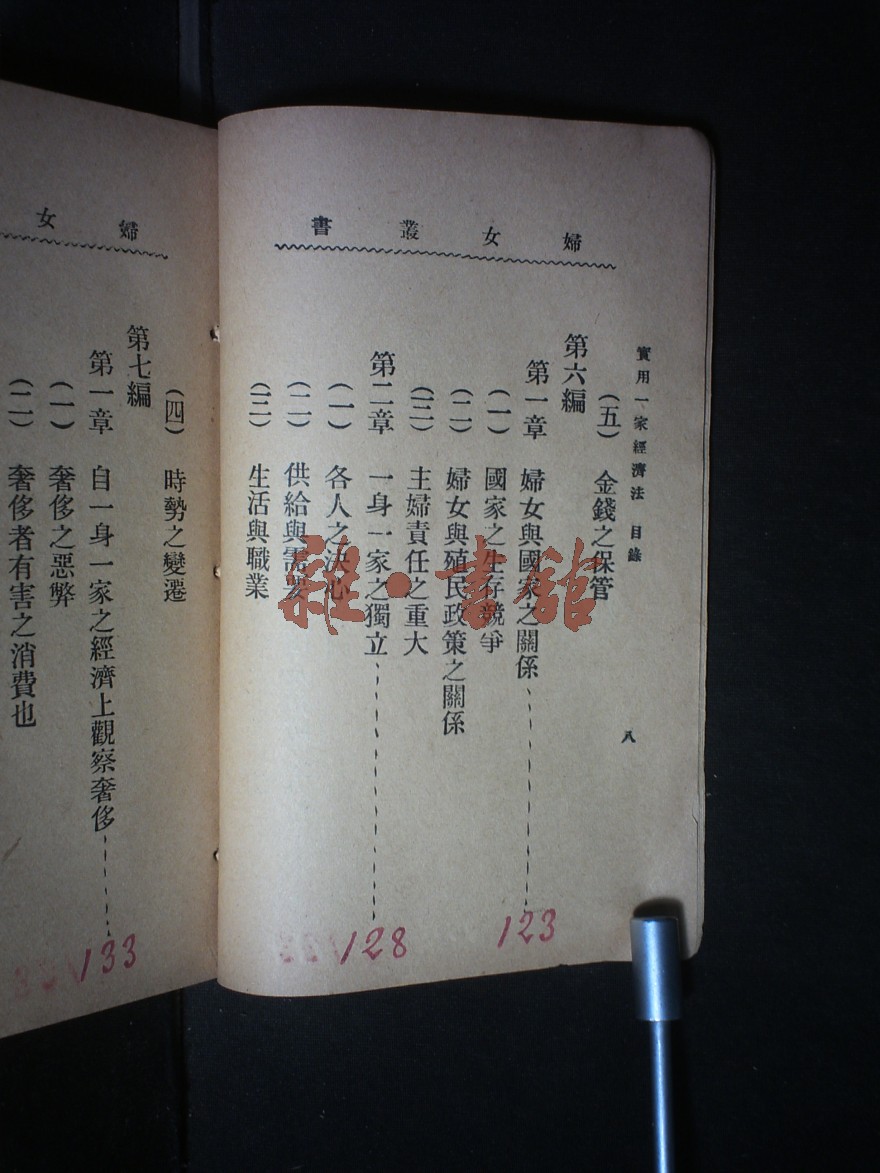 婦女叢書
實用一家經濟法 目錄 八
(五) 金錢之保管
第六編
第一章 婦女與國家之關係 123
(一) 國家之生存競爭
(二) 婦女與殖民政策之關係
(三) 主婦責任之重大
第二章 一身一家之獨立 128
(一) 各人之決心
(二) 供給與需要
(三) 生活與職業
婦女
(四) 時勢之變遷
第七編
第一章 自一身一家之經濟上觀察奢侈 133
(一) 奢侈之惡弊
(二) 奢侈者有害之消費也
雜·書館